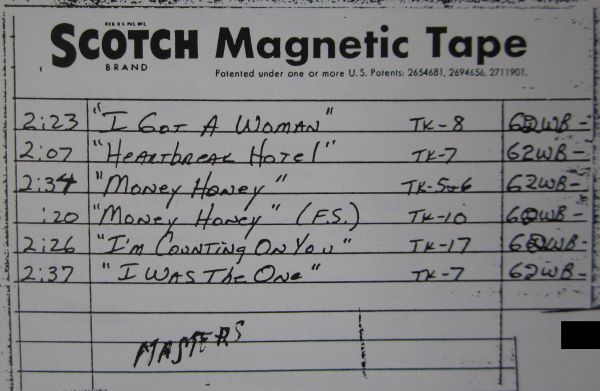 SCOTCH Magnetic Tape
BRAND
Patented under one or more U.S. Patents: 2654681, 2694656, 2711901.
2:23 "I GOT A WOMAN" TK-8 62WB-
2:07 "HEARTBREAK HOTEL" TK-7 62WB-
2:34 "MONEY HONEY" TK-5+6 62WB-
:20 "MONEY HONEY" (F.S.) TK-10 62WB-
2:26 "I'M COUNTING ON YOU" TK-17 62WB-
2:37 "I WAS THE ONE" TK-7 62WB-
MASTERS